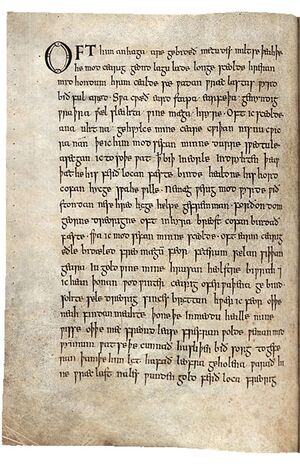 OFT him anhaga are gebideð metudes miltse þeahþe
he mod cearig geond lagu lade longe sceolde hreran
mid hondum hrim cealde sæ wadan wræc lastas wyrd
bið ful aræd · Swa cwæð eard stapa earfeþa gemyndig
wraþra wæl sleahta wine mæga hryre · Oft ic sceolde
ana uhtna gehwylce mine ceare cwiþan nis nu cwic
ra nan þe ic him mod sefan minne durre sweotule
asecgan ic to soþe wat þ biþ in eorle indryhten þeaw
þæt he his ferð locan fæste binde healdne his hord
cofan hycge swa he wille · Ne mæg werig mod wyrde wið
stondan ne se hreo hyge helpe gefremman · Forðon dom
georne dreorigne oft in hyra breost cofan bindað
fæste · swa ic mod sefan minne sceolde · oft earm cearig
eðle bidæled freo mægum feor feterum sælan siþþan
geara iu gold wine mine hrusan heolstre biwrah ⁊
ic hean þonan wod winter cearig ofer waþena ge bind
sohte sele dreorig sinces bryttan hwær ic feor oþþe
neah findan meahte þone þe in meodu healle mine
wisse oþþe mec freond lease frefran wolde weman mid
wynnum wat se þe cunnað hu sliþen bið sorg to gefe
ran þam þe him lyt hafað leofra geholena warað hi
ne wræc last nales wunden gold ferð loca freorig